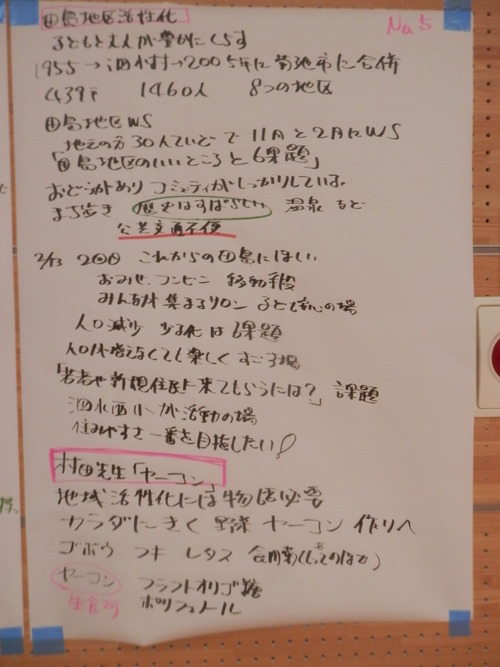 No 5
田島地区活性化
子どもと大人が豊かにくらす
1955→泗水村→2005年に菊池市に合併
439戸 1460人 8つの地区
田島地区WS
地元の方30人ていどで11月と2月にWS
「田島地区のいいところと課題」
おどりがあり コミュニティがしっかりしている。
まち歩き 歴史はすばらしい 温泉など
公共交通不便
2/13 2回目 これからの田島にほしい
おみせ、コンビニ 移動手段
みんなが集まるサロン 子ども安心の場
人口減少 少子化は課題
人口が増えなくても楽しくすごす場
「若者や新規住民に来てもらうには?」課題
泗水西小が活動の場
住みやすさ一番を目指したい!
村田先生「ヤーコン」
地域活性化には物語必要
カラダにきく野菜 ヤーコン 作りへ
ゴボウ フキ レタス
ヤーコン フラクトオリゴ糖
生食可 ポリフェノール